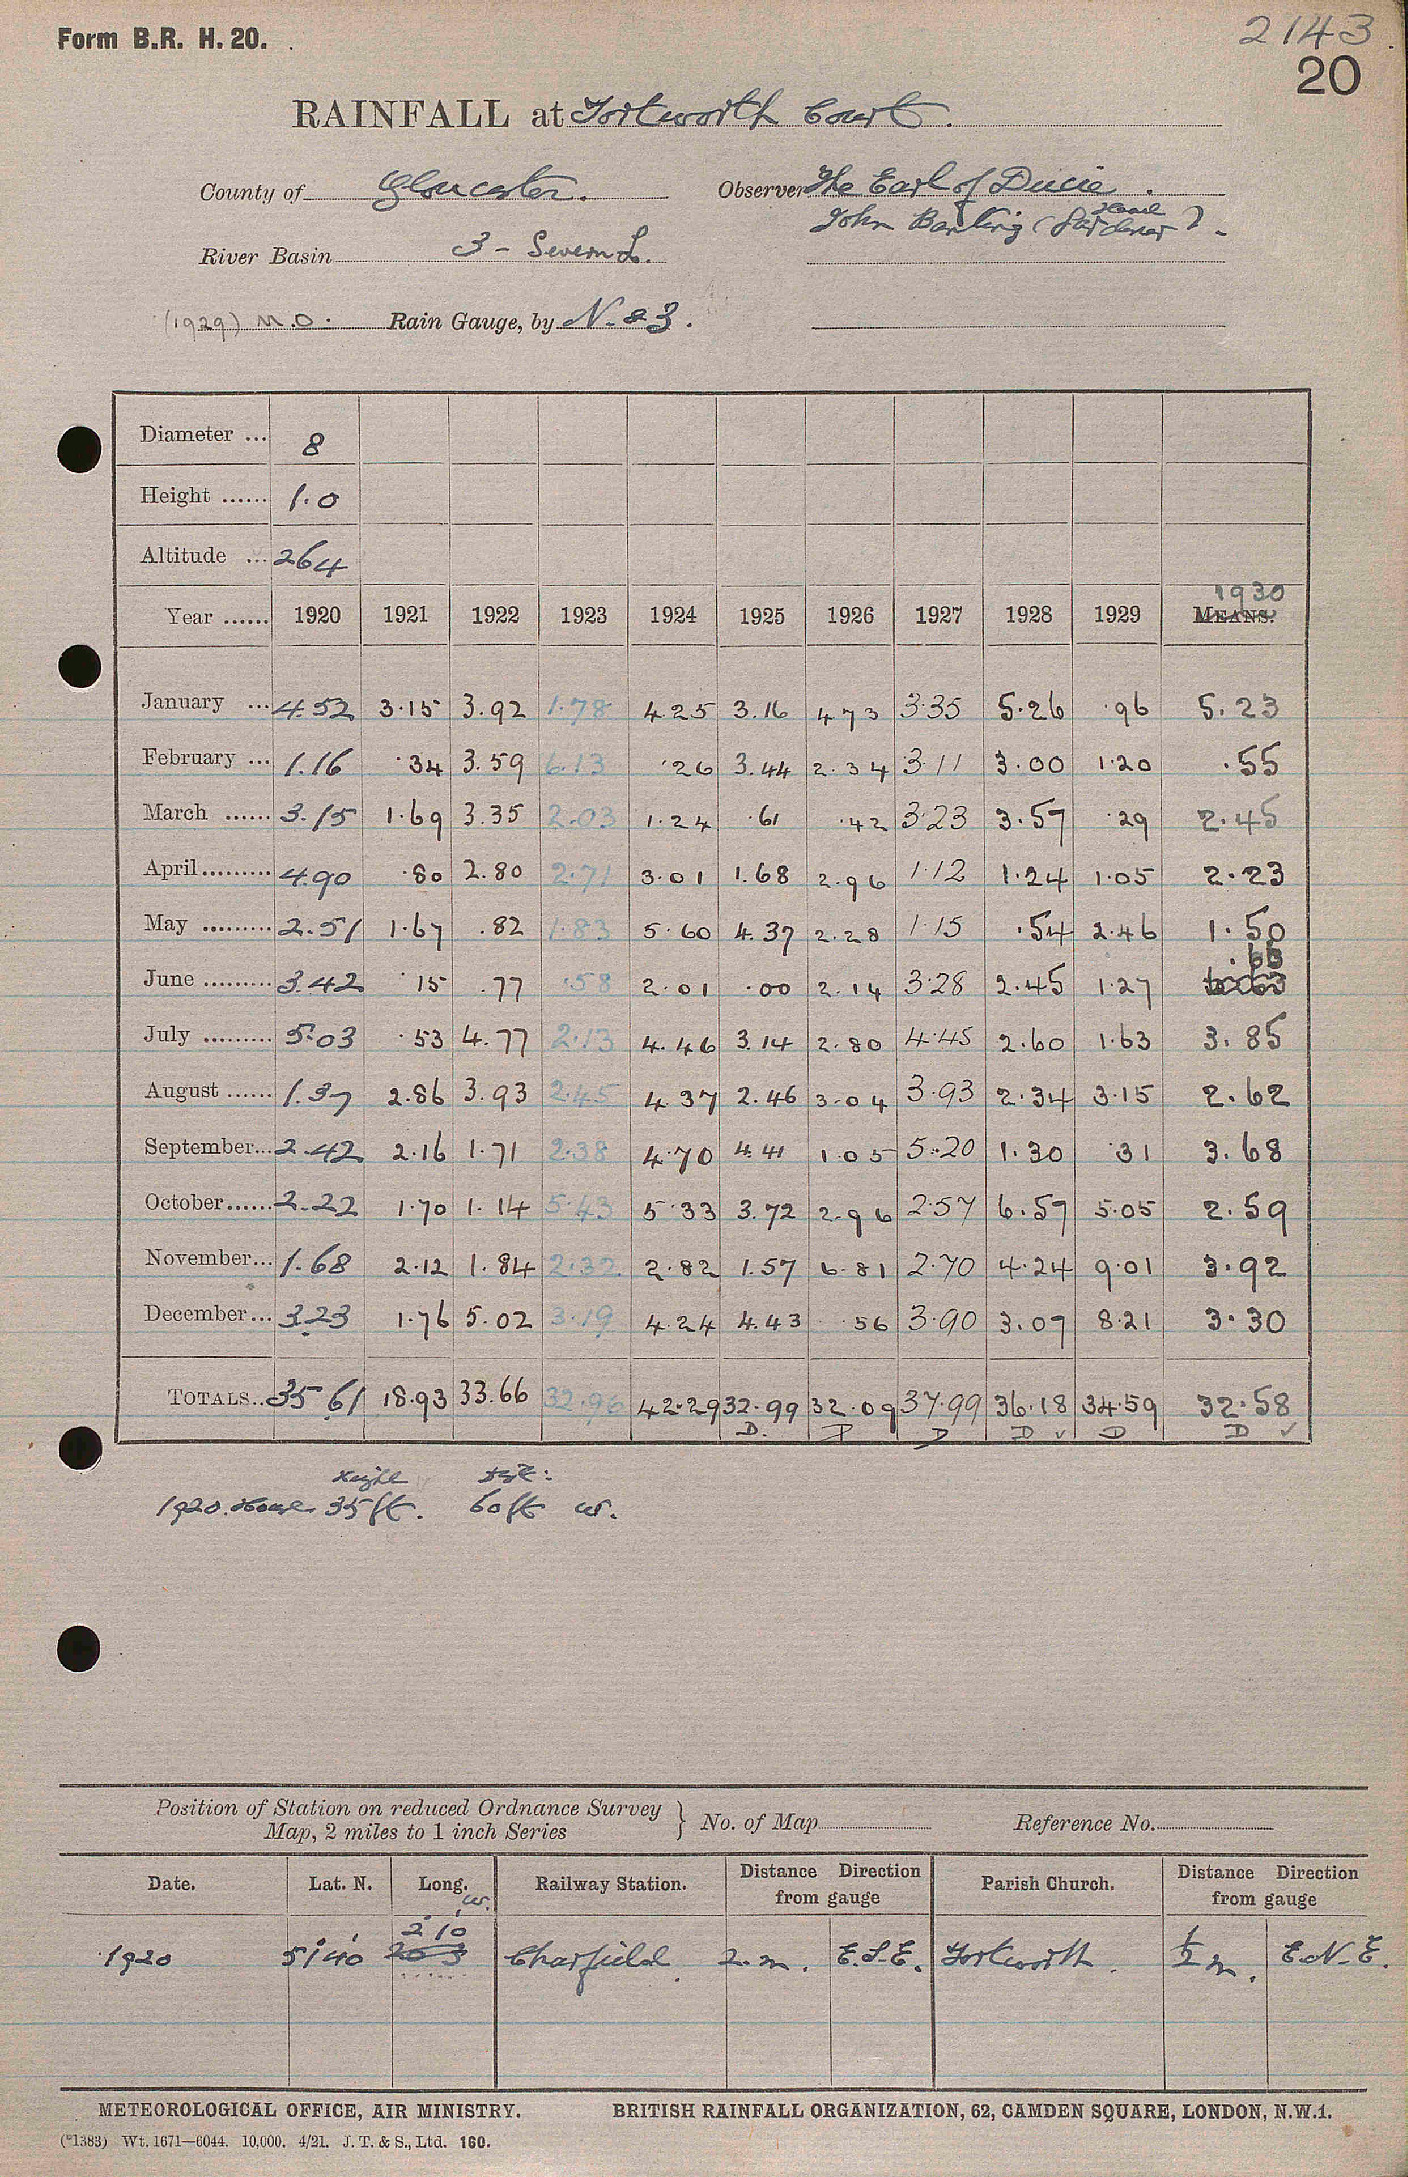 Form B.R. H. 20.
2143
20
RAINFALL at Tortworth Court.
County of Gloucester. Observer The Earl of Ducie.
John Banking (Head Gardener).
River Basin 3 - Severn L.
(1929) M.O. Rain Gauge, by N. & Z.
Diameter ... 8
Height ...... 1.0
Altitude ... 264
Year ...... 1920 1921 1922 1923 1924 1925 1926 1927 1928 1929 MEANS. 1930
January ... 4.52 3.15 3.92 1.78 4.25 3.16 4.73 3.35 5.26 .96 5.23
February ... 1.16 .34 3.59 6.13 .26 3.44 2.34 3.11 3.00 1.20 .55
March ...... 3.15 1.69 3.35 2.03 1.24 .61 .42 3.23 3.57 .29 2.45
April......... 4.90 .80 2.80 2.71 3.01 1.68 2.96 1.12 1.24 1.05 2.23
May ......... 2.51 1.67 .82 1.83 5.60 4.37 2.28 1.15 .54 2.46 1.50
June ......... 3.42 .15 .77 .58 2.01 .00 2.14 3.28 2.45 1.27 .66
July ......... 5.03 .53 4.77 2.13 4.46 3.14 2.80 4.45 2.60 1.63 3.85
August ...... 1.37 2.86 3.93 2.45 4.37 2.46 3.04 3.93 2.34 3.15 2.62
September... 2.42 2.16 1.71 2.38 4.70 4.41 1.05 5.20 1.30 .31 3.68
October...... 2.22 1.70 1.14 5.43 5.33 3.72 2.96 2.57 6.57 5.05 2.59
November... 1.68 2.12 1.84 2.32 2.82 1.57 6.81 2.70 4.24 9.01 3.92
December... 3.23 1.76 5.02 3.19 4.24 4.43 .56 3.90 3.07 8.21 3.30
TOTALS.. 35.61 18.93 33.66 32.96 42.29 32.99 32.09 37.99 36.18 34.59 32.58
D. D D D ✓ D D ✓
Height dist:
1920. House 35 ft. 60 ft W.
Position of Station on reduced Ordnance Survey
Map, 2 miles to 1 inch Series } No. of Map Reference No.
Date. Lat. N. Long. W. Railway Station. Distance Direction from gauge Parish Church. Distance Direction from gauge
2° 10'
1920 51° 40' 20 3 Charfield. 2 m. E.S.E. Tortworth. ½ m. E.N.E.
METEOROLOGICAL OFFICE, AIR MINISTRY. BRITISH RAINFALL ORGANIZATION, 62, CAMDEN SQUARE, LONDON, N.W.1.
(*1383) Wt. 1671—6044. 10,000. 4/21. J. T. & S., Ltd. 160.